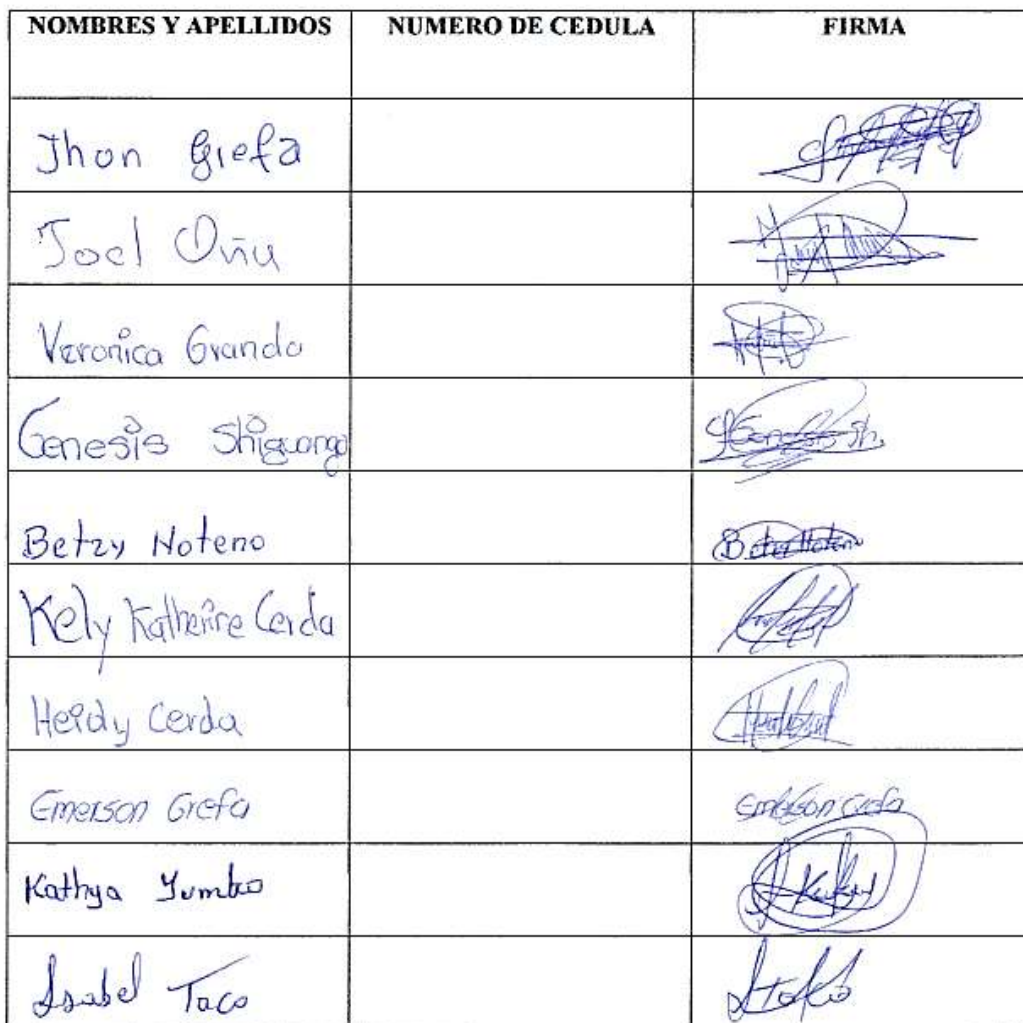 NOMBRES Y APELLIDOS NUMERO DE CEDULA FIRMA
Jhon Grefa
Joel Oña
Veronica Granda
Genesis Shiguango Genesis Sh.
Betzy Noteno Betzy Noteno
Kely Katherine Cerda
Heidy Cerda
Emerson Grefa Emerson Grefa
Kathya Yumbo
Isabel Taco